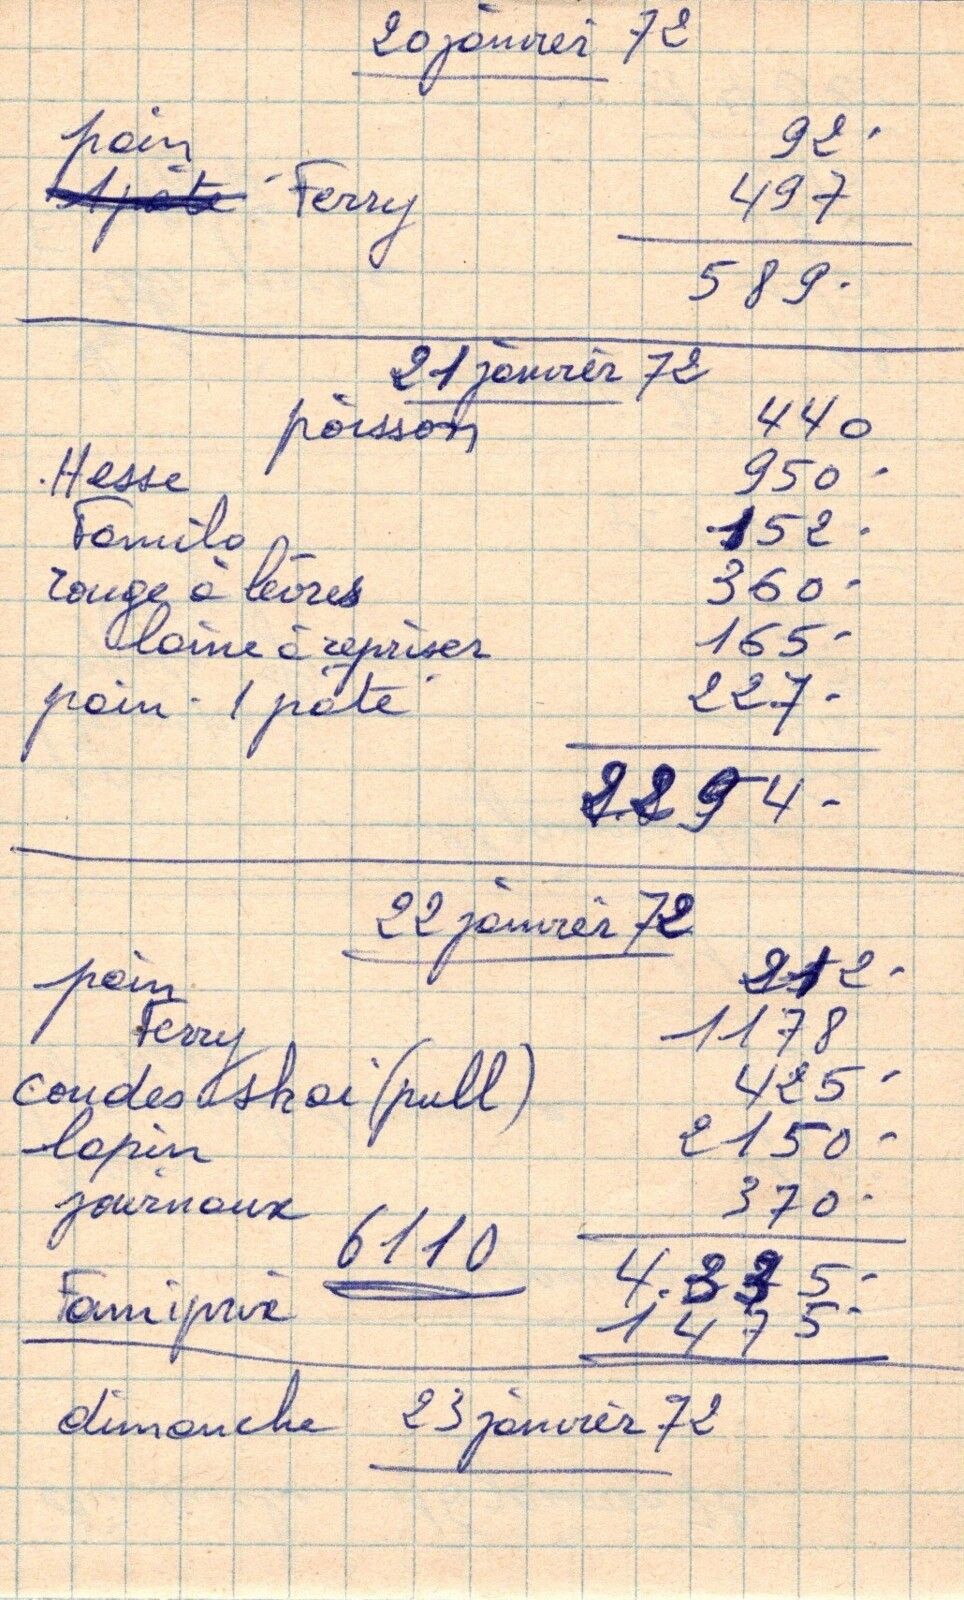 20 janvier 72
pain 92.
1 pâté Ferry 497
589.
21 janvier 72
poisson 440
Hesse 950.
Famila 152.
rouge à lèvres 360-
laine à repriser 165-
pain - 1 pâté 227-
2294-
22 janvier 72
pain 212-
Ferry 1178
coudes skai (pull) 425-
lapin 2150-
journaux 370-
6110 4.335-
Famiprix 1475-
dimanche 23 janvier 72